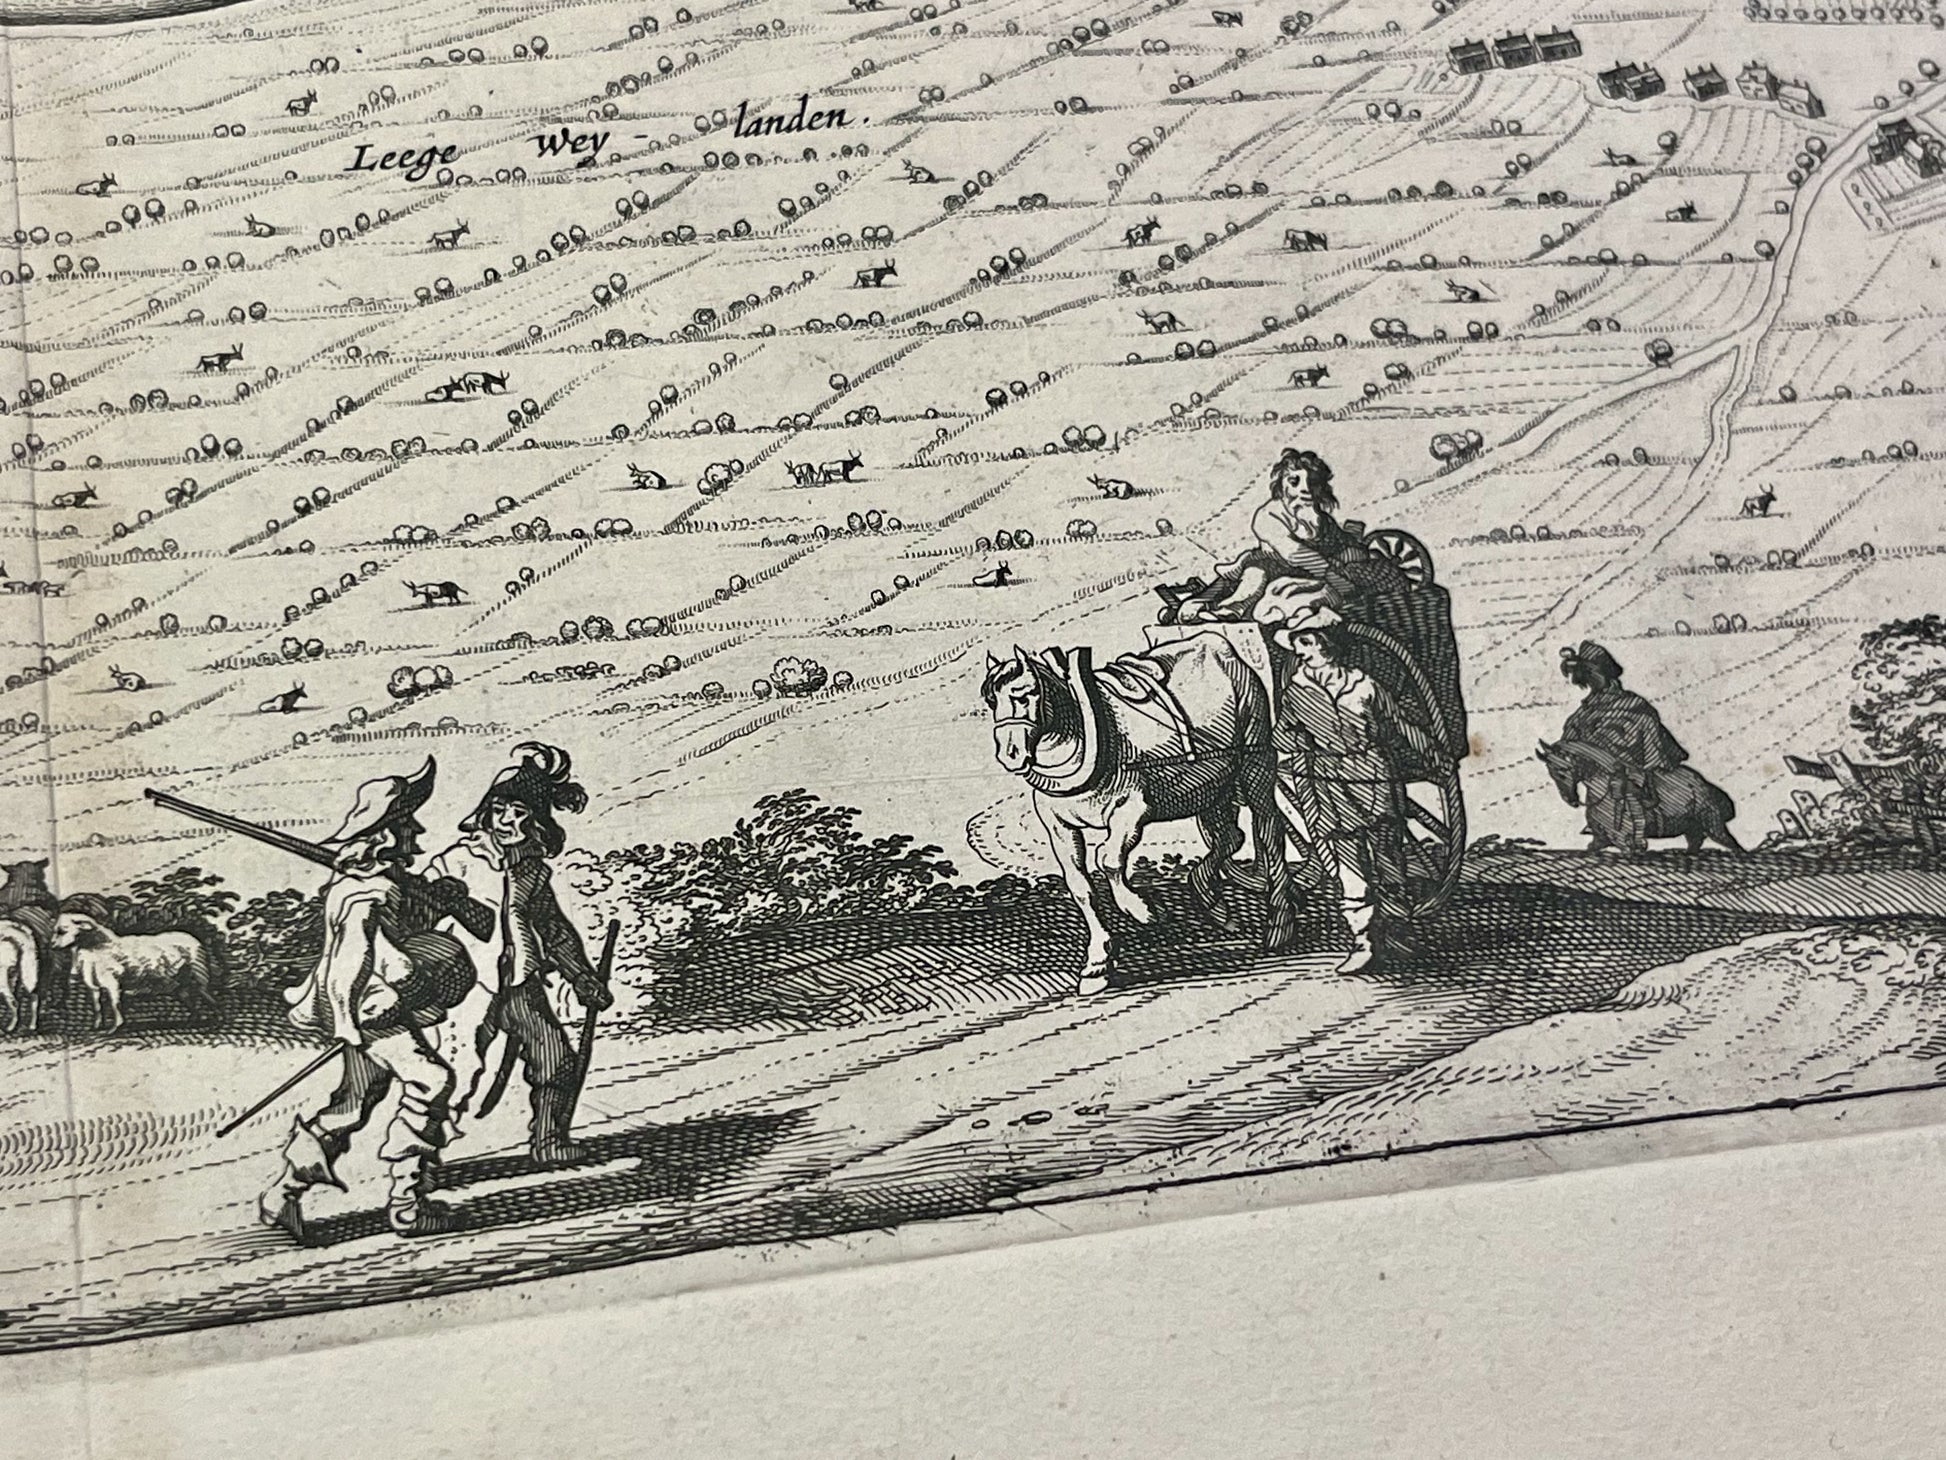 Leege Wey - landen.